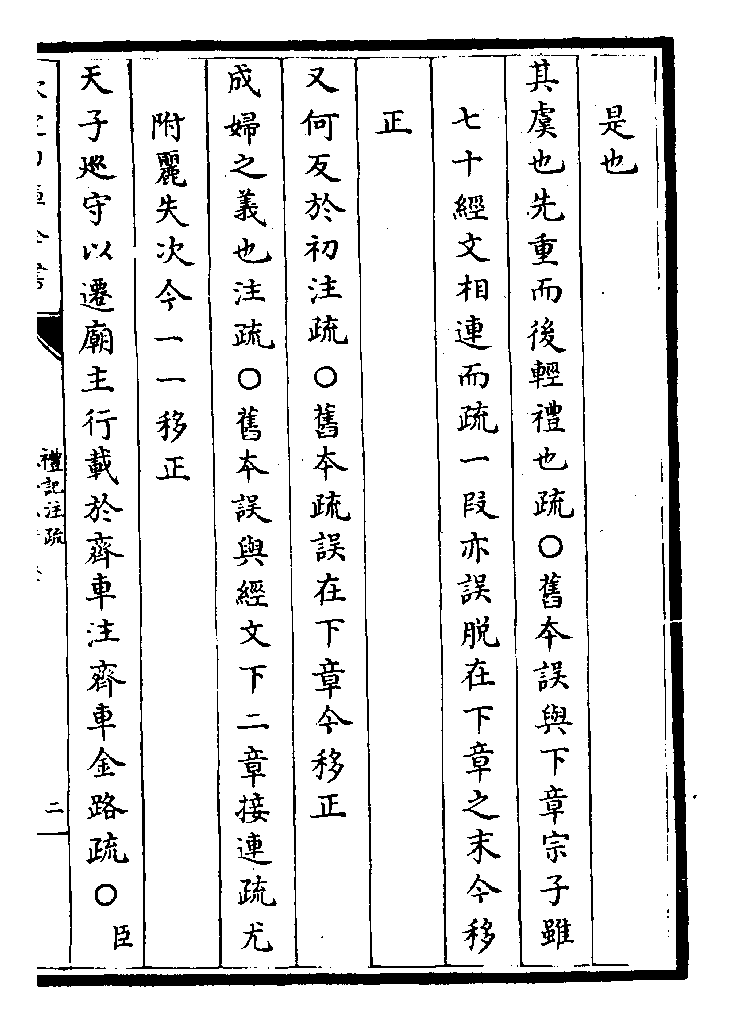 是也
其虞也先重而後輕禮也疏○舊本誤與下章宗子雖
七十經文相連而疏一段亦誤脫在下章之末今移
正
又何反於初注疏○舊本疏誤在下章今移正
成婦之義也注疏○舊本誤與經文下二章接連疏尤
附麗失次今一一移正
天子廵守以遷廟主行載於齊車注齊車金路疏○臣
禮記注疏
二